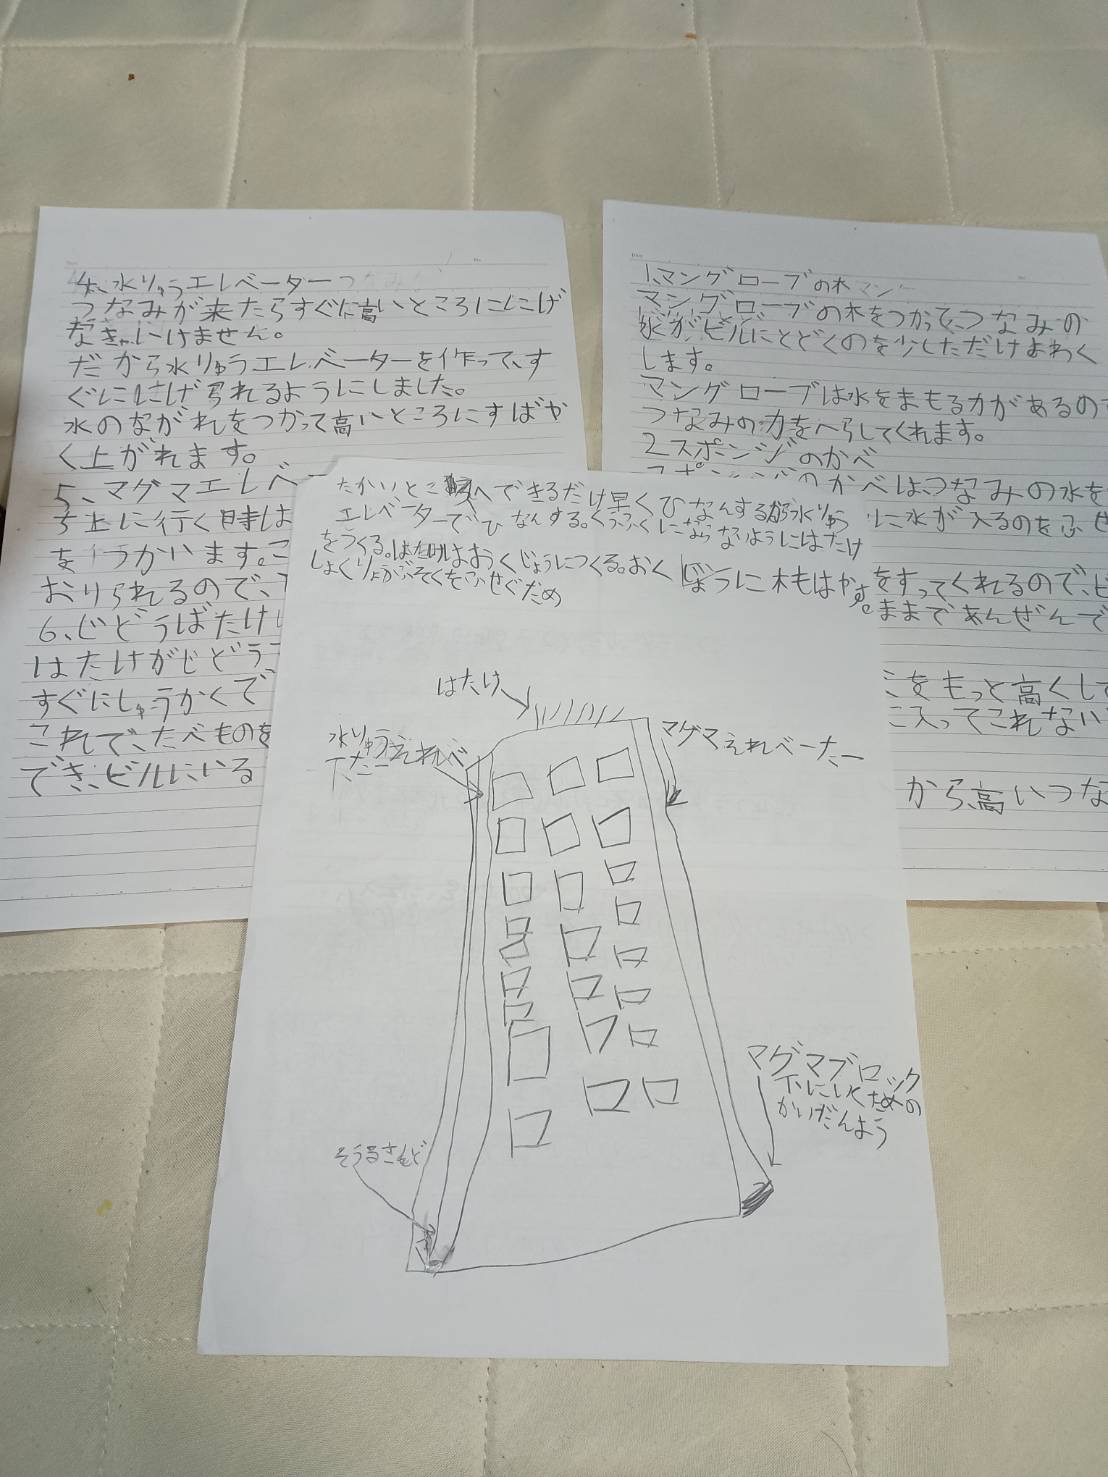 4、水りゅうエレベーター
つなみが来たらすぐに高いところににげ
なきゃいけません。
だから水りゅうエレベーターを作って、す
ぐににげられるようにしました。
水のながれをつかって高いところにすばや
く上がれます。
5、マグマエレベ
に行く時は
をつかいます。こ
おりられるので、
6、じどうばたけ
はたけがじどう
すぐにしゅうかくで
これで、たべものを
でき、ビルにいる
1、マングローブの木
マングローブの木をつかって、つなみの
水がビルにとどくのを少しだけよわく
します。
マングローブは水をまもる力があるので
つなみの力をへらしてくれます。
2スポンジのかべ
のかべは、つなみの水を
に水が入るのをふせ
をすってくれるので、ビ
ままであんぜんで
をもっと高くして
に入ってこれない
から、高いつな
たかいところへできるだけ早くひなんするから水りゅう
エレベーターでひなんする。くうふくにならないようにはたけ
をつくる。はたけはおくじょうにつくる。おくじょうに木もはやす。
しょくりょうぶそくをふせぐため
はたけ
水りゅうえれべ
ーたー
マグマえれべーたー
マグマブロック
下にいくための
かいだんよう
そうるさんど